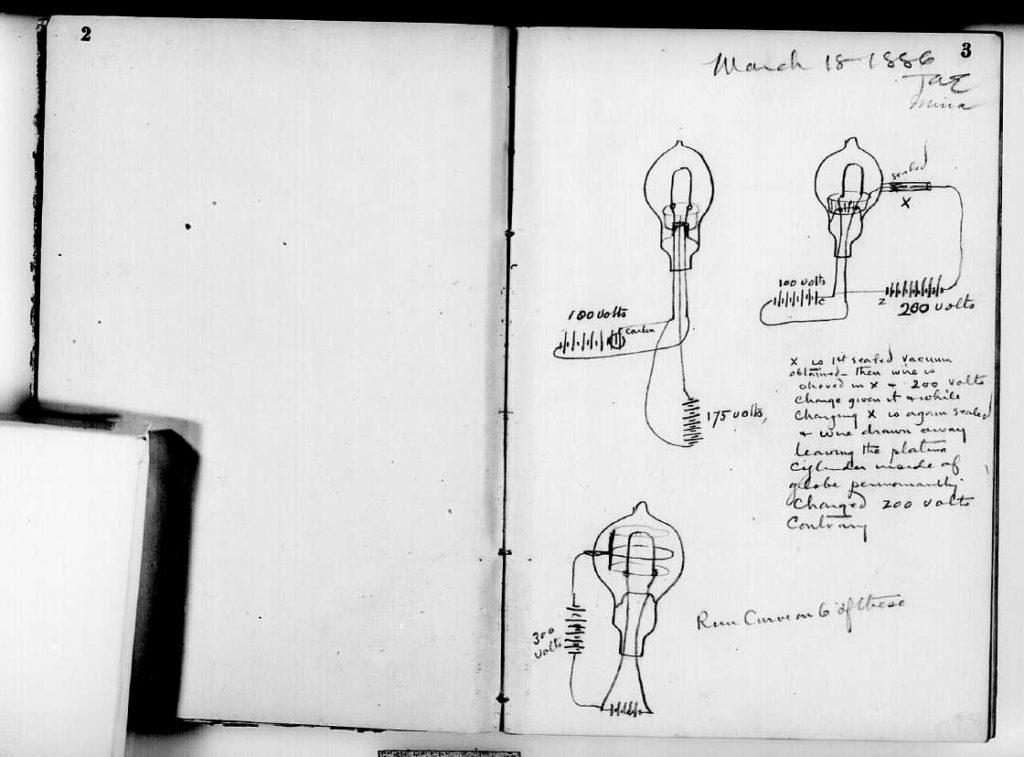 2
3
March 18-1886
TAE
Mina
sealed
X
100 volts
c
z
200 volts
100 volts
Carbon
175 volts,
X is 1st sealed vacuum
obtained - then wire is
shoved in X + 200 volts
charge given it & while
charging X is again sealed
& wire drawn away
leaving the platina
cylinder inside of
globe permanantly
charged 200 volts
Contrary
300
volts
Run Curve on 6 of these